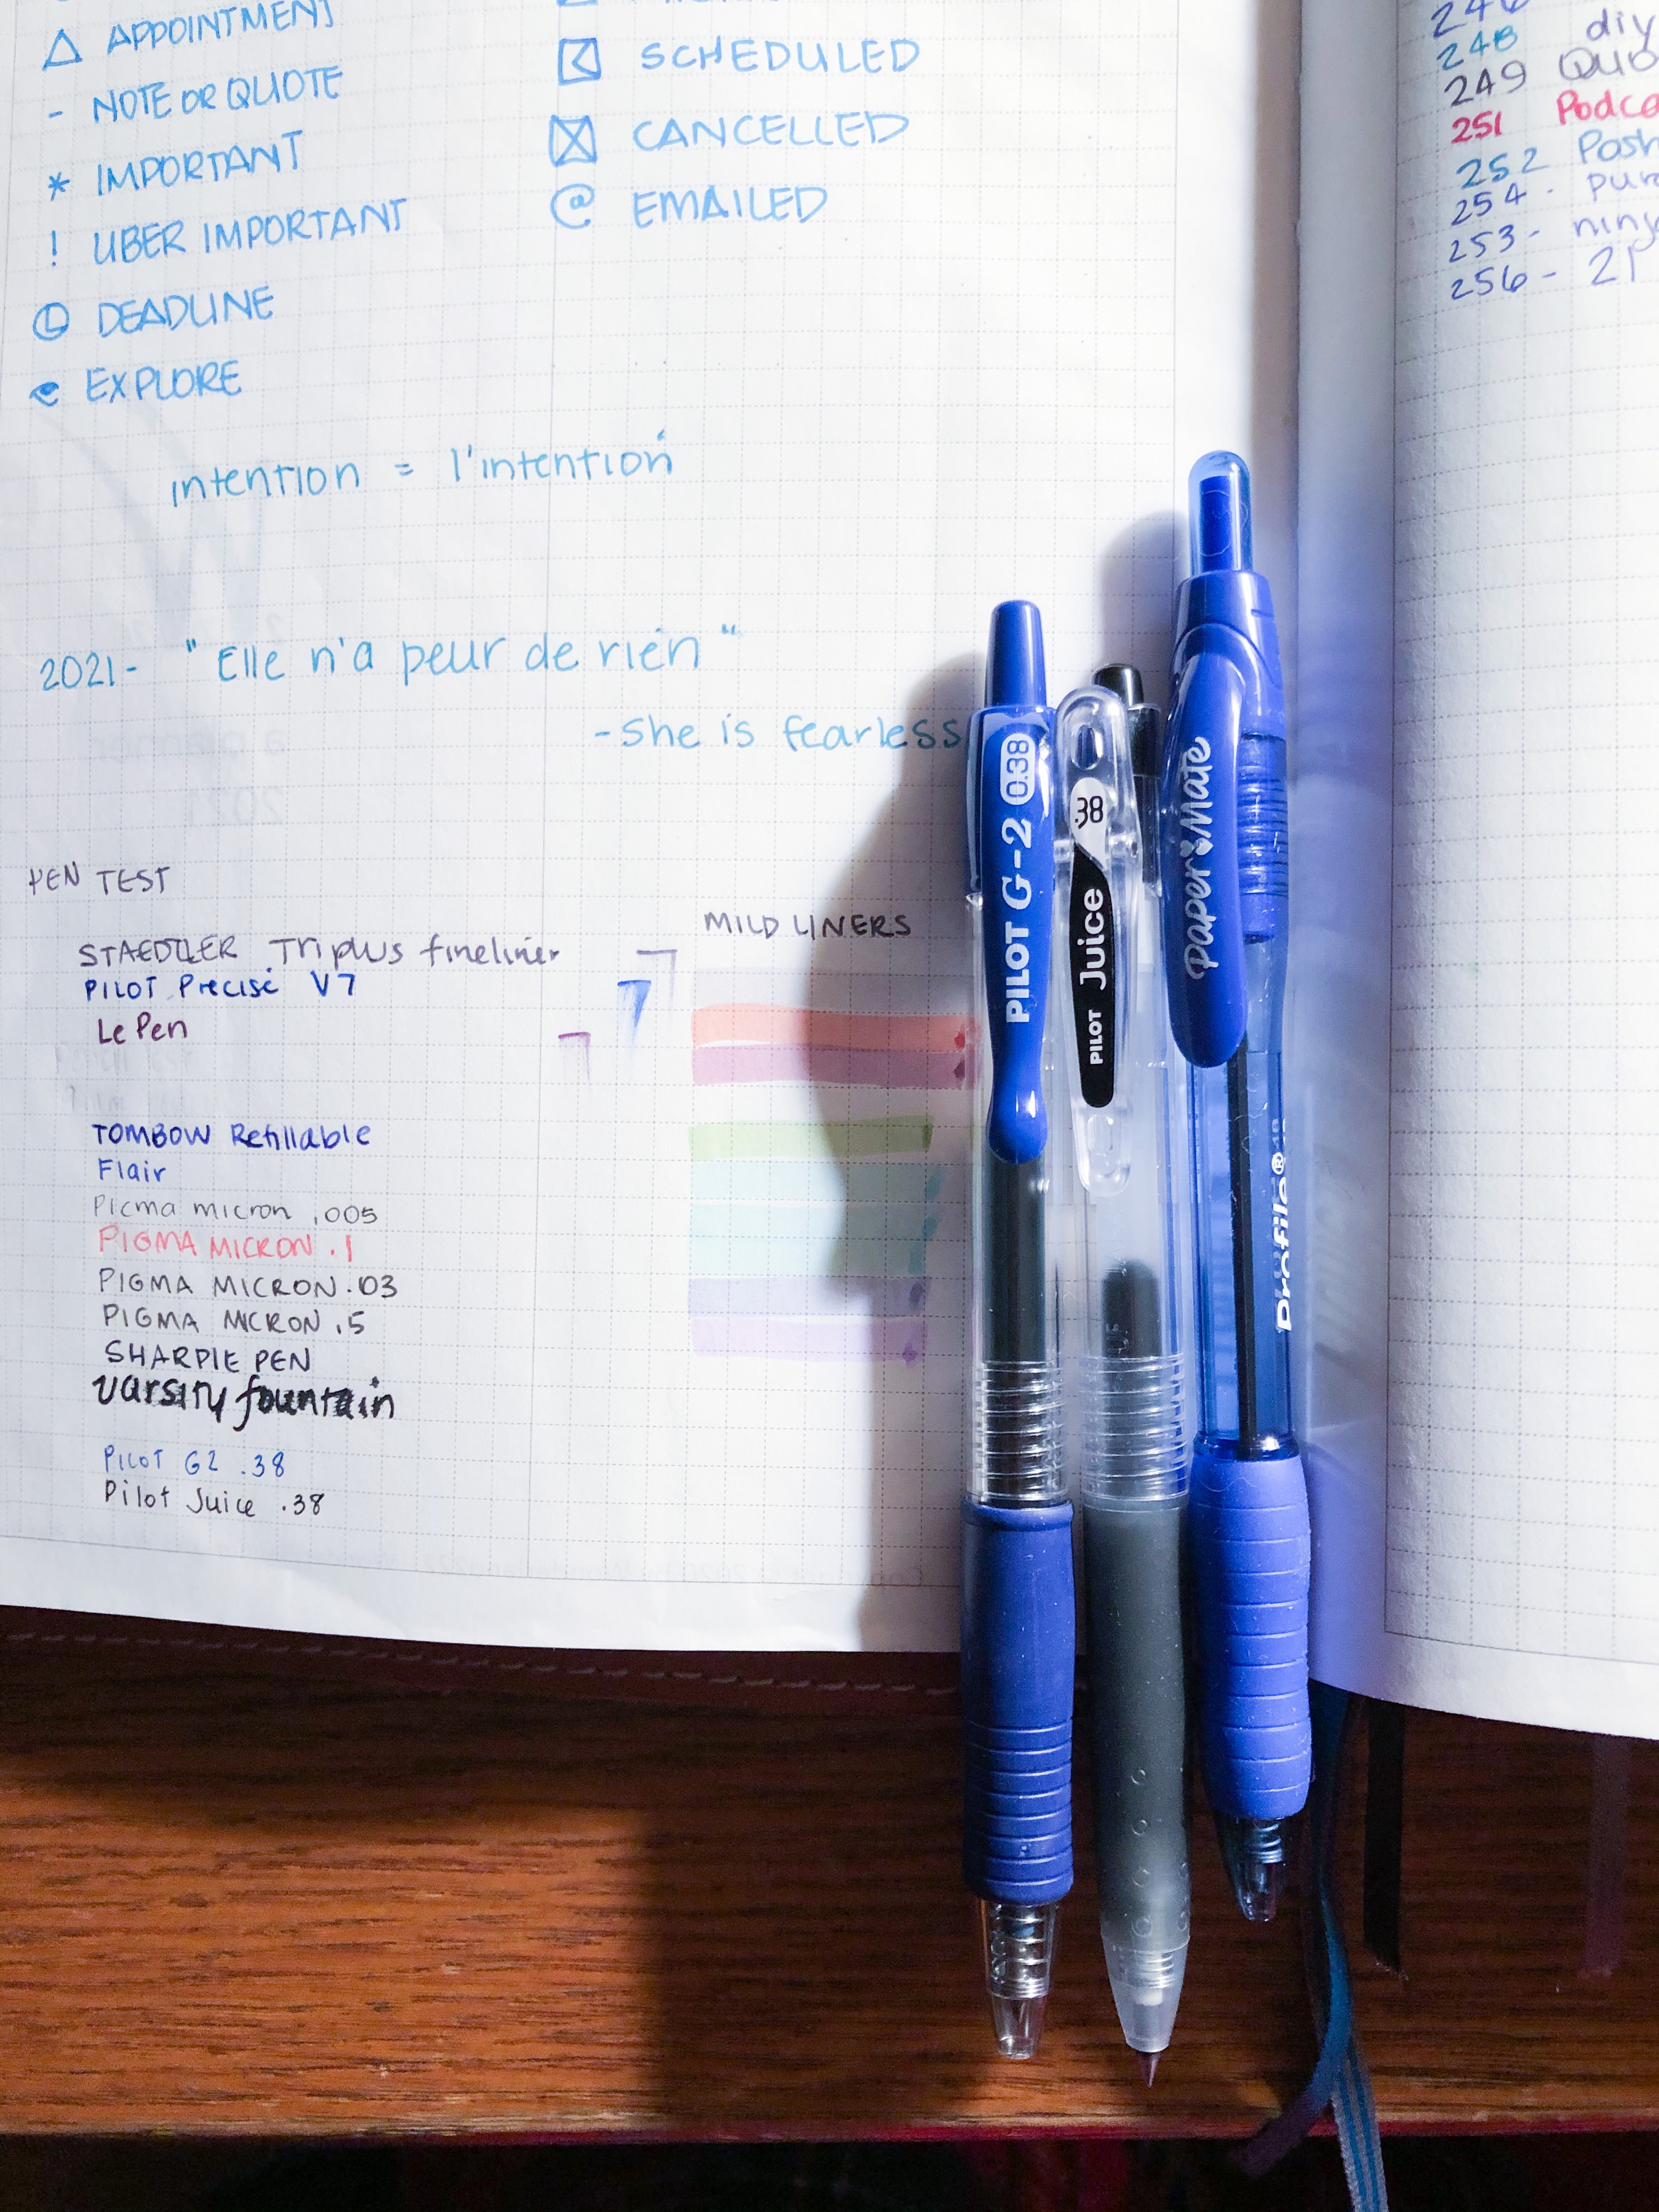 △ APPOINTMENT
- NOTE OR QUOTE
* IMPORTANT
! UBER IMPORTANT
DEADLINE
EXPLORE
SCHEDULED
CANCELLED
@ EMAILED
intention = l'intention
2021- "Elle n'a peur de rien"
- She is fearless
PEN TEST
STAEDTLER Triplus fineliner
PILOT Precise V7
Le Pen
TOMBOW Refillable
Flair
Picma micron .005
PIGMA MICRON .1
PIGMA MICRON .03
PIGMA MICRON .5
SHARPIE PEN
varsity fountain
PILOT G2 .38
Pilot Juice .38
MILD LINERS
PILOT G-2 0.38
PILOT Juice .38
Paper Mate
Profile®
248 diy
249
251
252
254 -
253 -
256 - 21